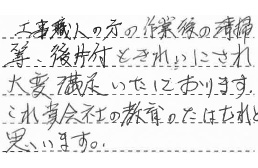 工事職人の方の作業後の清掃
等、後片付ときれいにされ
大変満足いたしております。
これ貴会社の教育のたはれと
思います。